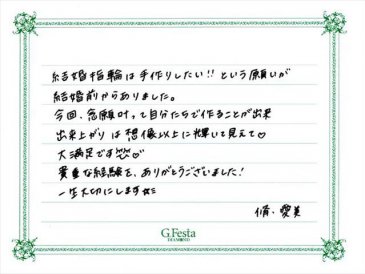 結婚指輪は手作りしたい!! という願いが
結婚前からありました。
今回、念願叶って自分たちで作ることが出来
出来上がりは想像以上に輝いて見えて♡
大満足です💍♡
貴重な経験を、ありがとうございました!
一生大切にします☆彡
脩・愛美
G.Festa
DIAMOND